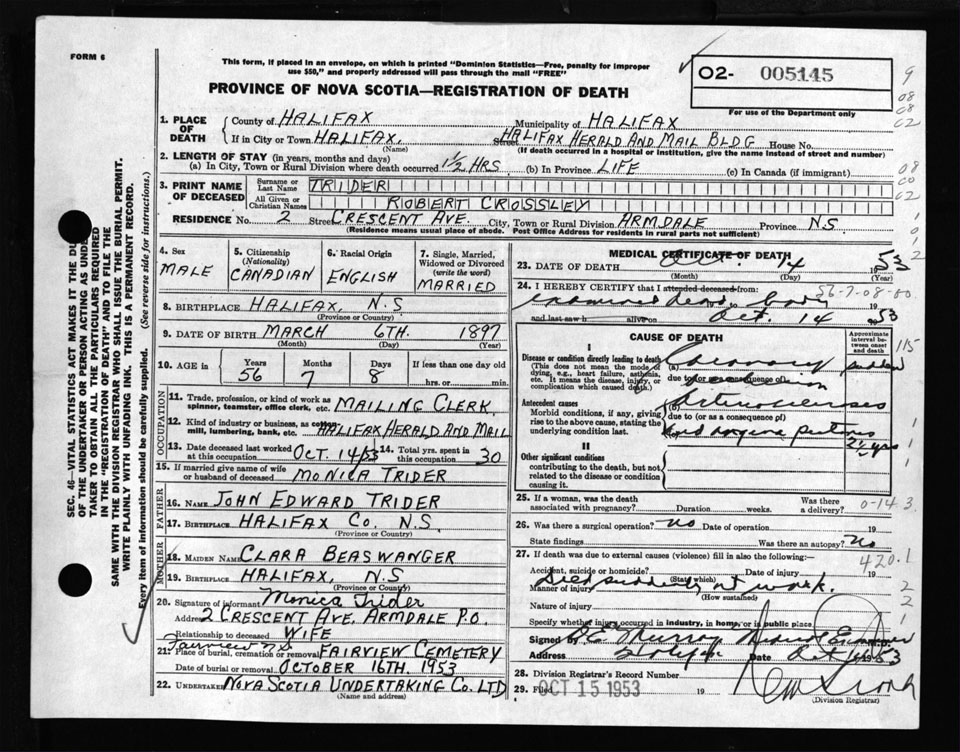 FORM 6
This form, if placed in an envelope, on which is printed "Dominion Statistics—Free, penalty for improper
use $50," and properly addressed will pass through the mail "FREE"
O2- 005145
For use of the Department only
PROVINCE OF NOVA SCOTIA—REGISTRATION OF DEATH
1. PLACE OF DEATH { County of HALIFAX Municipality of HALIFAX
If in City or Town HALIFAX. Street HALIFAX HERALD AND MAIL BLDG House No.
(Name) (If death occurred in a hospital or institution, give the name instead of street and number)
2. LENGTH OF STAY (in years, months and days)
(a) In City, Town or Rural Division where death occurred 1½ HRS (b) In Province LIFE (c) In Canada (if immigrant)
3. PRINT NAME OF DECEASED { Surname or Last Name TRIDER
All Given or Christian Names ROBERT CROSSLEY
RESIDENCE No. 2 Street CRESCENT AVE. City, Town or Rural Division ARMDALE Province N.S.
(Residence means usual place of abode. Post Office Address for residents in rural parts not sufficient)
4. Sex MALE
5. Citizenship (Nationality) CANADIAN
6. Racial Origin ENGLISH
7. Single, Married, Widowed or Divorced (write the word) MARRIED
8. BIRTHPLACE HALIFAX, N.S
(Province or Country)
9. DATE OF BIRTH MARCH 6TH. 1897
(Month) (Day) (Year)
10. AGE in { Years 56 Months 7 Days 8 If less than one day old
hrs. or min.
OCCUPATION
11. Trade, profession, or kind of work as
spinner, teamster, office clerk, etc. MAILING CLERK.
12. Kind of industry or business, as cotton
mill, lumbering, bank, etc. HALIFAX HERALD AND MAIL
13. Date deceased last worked at this occupation OCT. 14/53 14. Total yrs. spent in this occupation 30
15. If married give name of wife
or husband of deceased MONICA TRIDER
FATHER
16. NAME JOHN EDWARD TRIDER
17. BIRTHPLACE HALIFAX CO. N.S.
(Province or Country)
MOTHER
18. MAIDEN NAME CLARA BEASWANGER
19. BIRTHPLACE HALIFAX, N.S
(Province or Country)
20. Signature of informant Monica Trider
Address 2 CRESCENT AVE, ARMDALE P.O.
Relationship to deceased WIFE
Fairview N.S
21. Place of burial, cremation or removal FAIRVIEW CEMETERY
Date of burial or removal OCTOBER 16TH. 1953
22. UNDERTAKER NOVA SCOTIA UNDERTAKING CO. LTD
(Name and address)
MEDICAL CERTIFICATE OF DEATH
23. DATE OF DEATH Oct. 14 1953
(Month) (Day) (Year)
24. I HEREBY CERTIFY that I attended deceased from:
56-7-08-80
examined dead body to 19
and last saw h alive on Oct. 14 1953
CAUSE OF DEATH
Approximate interval between onset and death
Disease or condition directly leading to death
(This does not mean the mode of
dying, e.g., heart failure, asthenia,
etc. It means the disease, injury, or
complication which caused death.)
(a) Coronary sudden
due to (or as a consequence of)
Antecedent causes
Morbid conditions, if any, giving
rise to the above cause, stating the
underlying condition last.
(b)
due to (or as a consequence of)
2½ yrs
II
Other significant conditions
contributing to the death, but not
related to the disease or condition
causing it.
25. If a woman, was the death
associated with pregnancy? Duration weeks. Was there a delivery?
0-143
26. Was there a surgical operation? no Date of operation 19
State findings Was there an autopsy? No
27. If death was due to external causes (violence) fill in also the following:—
420.1
Accident, suicide or homicide? Date of injury 19
(State which)
Manner of injury Died suddenly at work.
(How sustained)
Nature of injury
Specify whether injury occurred in industry, in home, or in public place
Signed P.E. Murray Medical Examiner
Address Halifax Date Oct 1953
28. Division Registrar's Record Number
29. Filed OCT 15 1953 19
(Division Registrar)
SEC. 46—VITAL STATISTICS ACT MAKES IT THE DUTY
OF THE UNDERTAKER OR PERSON ACTING AS UNDER-
TAKER TO OBTAIN ALL THE PARTICULARS REQUIRED
IN THE "REGISTRATION OF DEATH" AND TO FILE THE
SAME WITH THE DIVISION REGISTRAR WHO SHALL ISSUE THE BURIAL PERMIT.
WRITE PLAINLY WITH UNFADING INK. THIS IS A PERMANENT RECORD.
Every item of information should be carefully supplied. (See reverse side for instructions.)